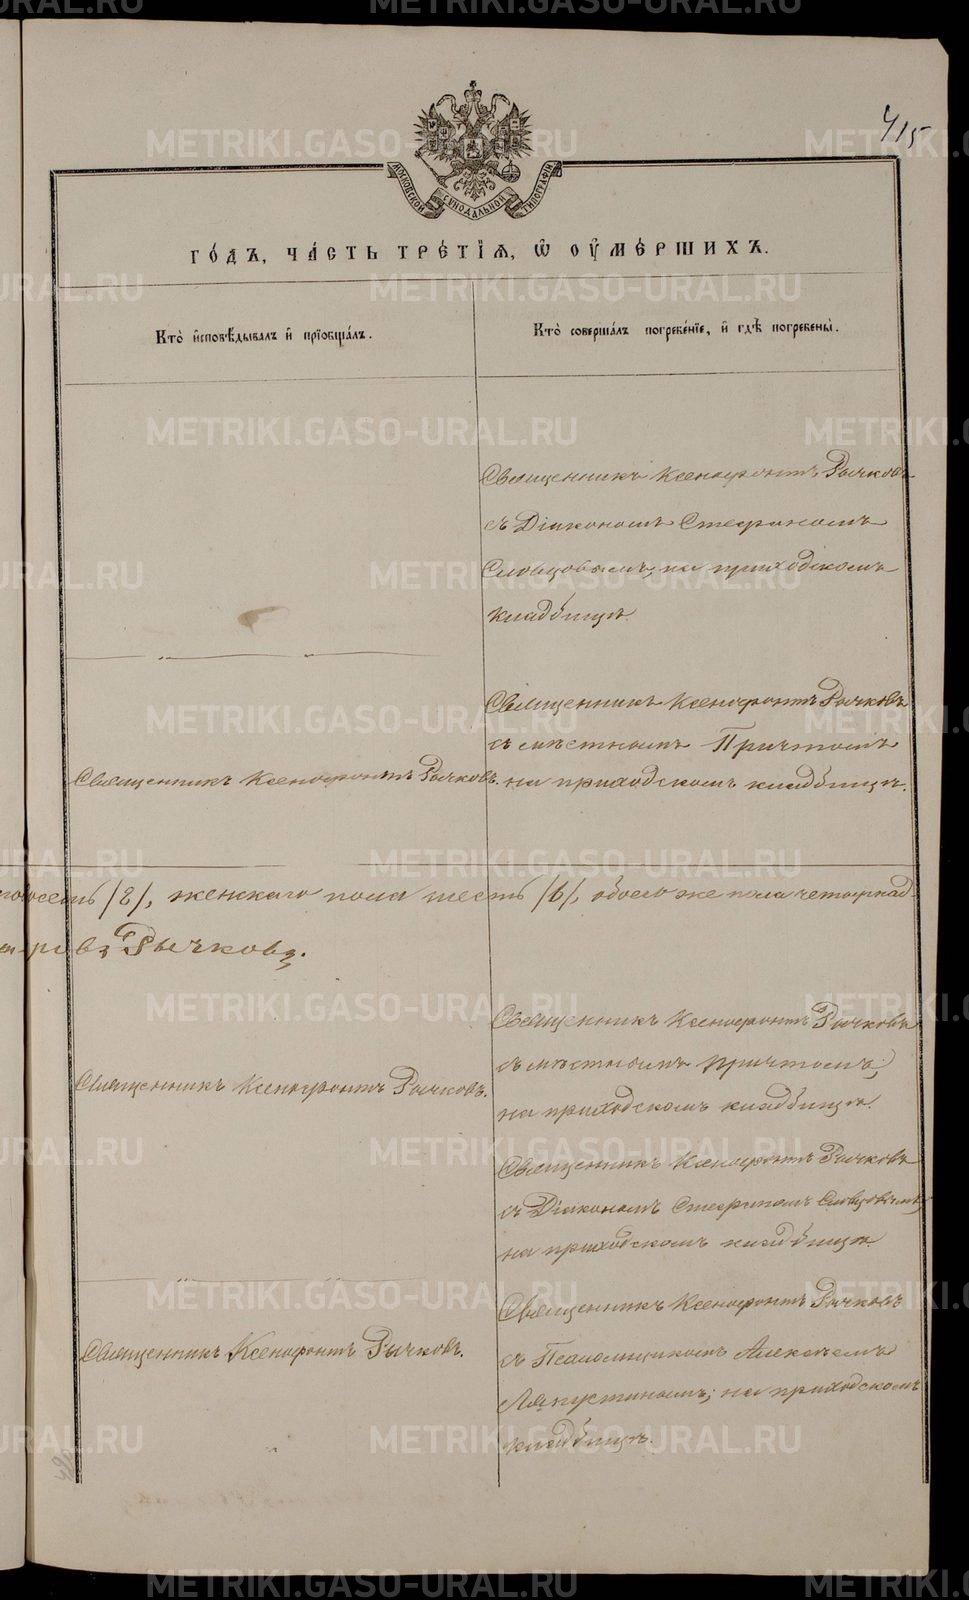 415
МОСКОВСКОЙ СѴНОДАЛЬНОЙ ТИПОГРАФІИ
ГО́ДЪ, ЧА́СТЬ ТРЕ́ТІЯ, Ѡ҆ ОУ҆МЕ́РШИХЪ.
Кто̀ и҆сповѣ́дывалъ и҆ прїѡбща́лъ.
Кто̀ соверша́лъ погребе́нїе, и҆ гдѣ̀ погребены̀.
Священникъ Ксенофонтъ Рычковъ
съ Діакономъ Стефаномъ
Словцовымъ, на приходскомъ
кладбищѣ.
Священникъ Ксенофонтъ Рычковъ.
Священникъ Ксенофонтъ Рычковъ
съ мѣстнымъ Причтомъ
на приходскомъ кладбищѣ.
восемь /8/, женскаго пола шесть /6/, обоего же пола четырнад-
Рычковъ.
Священникъ Ксенофонтъ Рычковъ.
Священникъ Ксенофонтъ Рычковъ
съ мѣстнымъ причтомъ,
на приходскомъ кладбищѣ.
Священникъ Ксенофонтъ Рычковъ
съ Діакономъ Стефаномъ Словцовымъ,
на приходскомъ кладбищѣ.
Священникъ Ксенофонтъ Рычковъ.
Священникъ Ксенофонтъ Рычковъ
съ Псаломщикомъ Алексѣемъ
Ляпустинымъ, на приходскомъ
кладбищѣ.
METRIKI.GASO-URAL.RU